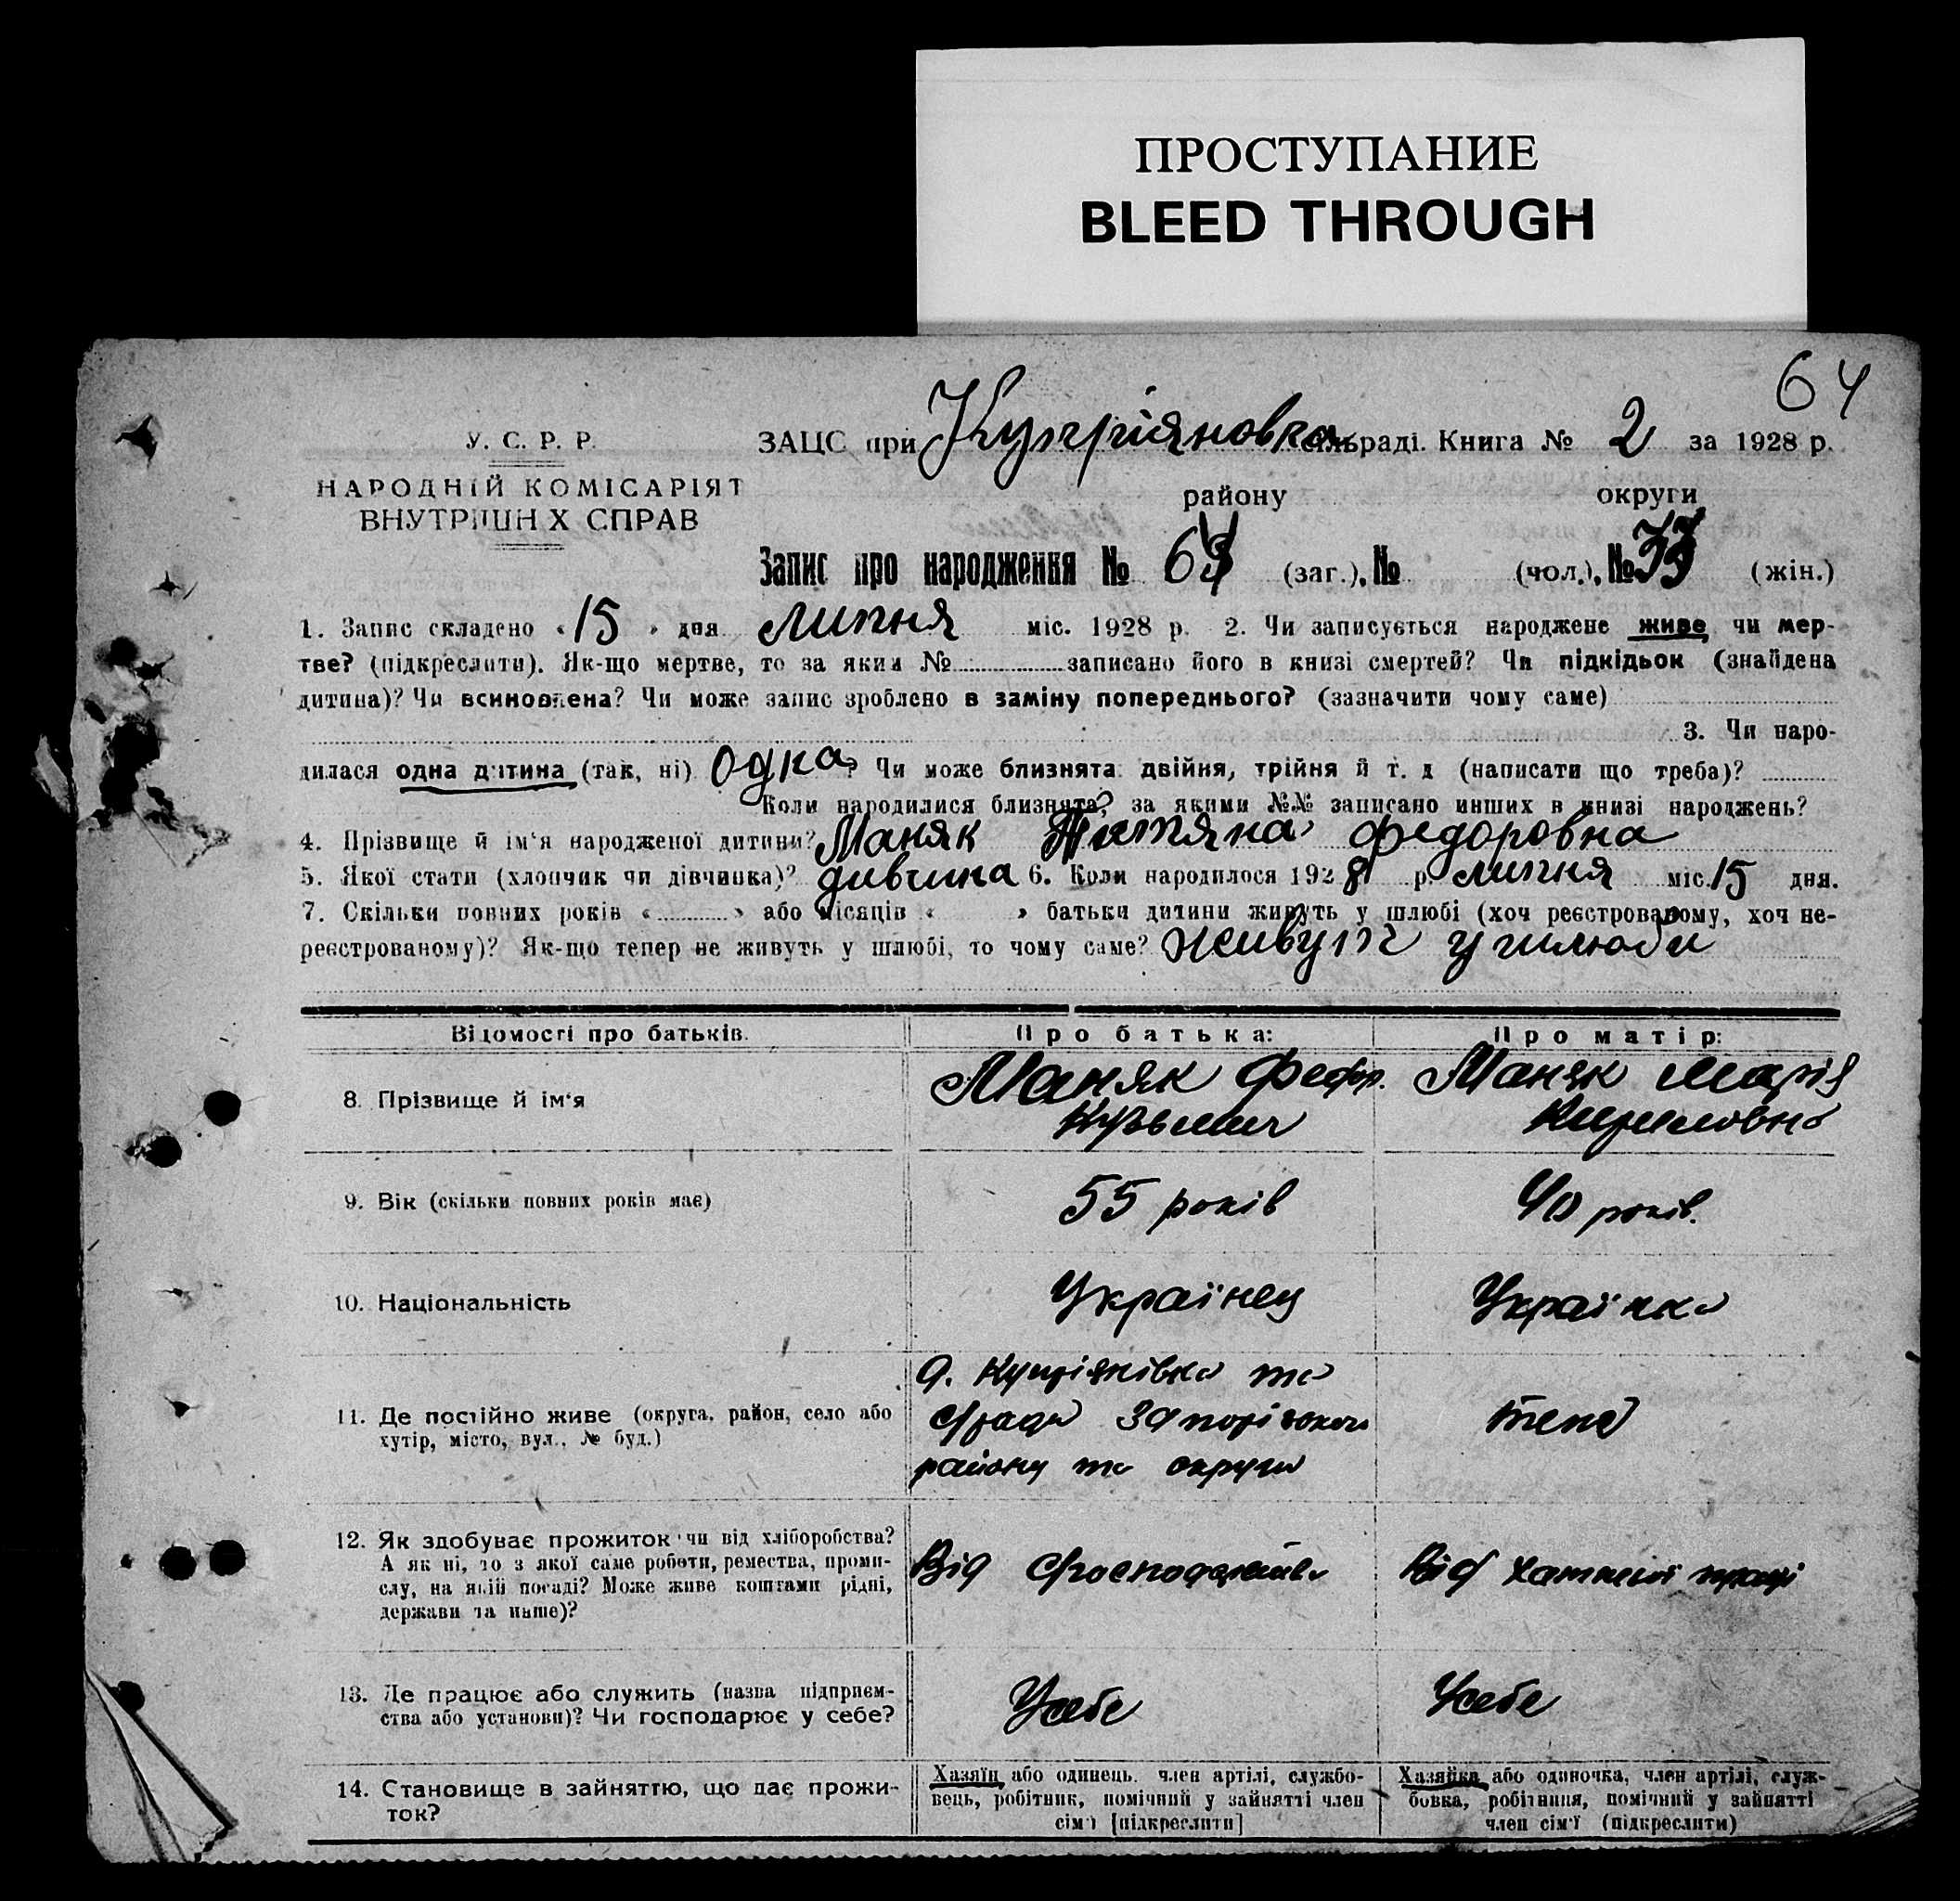 ПРОСТУПАНИЕ
BLEED THROUGH
64
У. С. Р. Р.
НАРОДНІЙ КОМІСАРІЯТ
ВНУТРІШНІХ СПРАВ
ЗАЦС при Купріяновка сільраді. Книга № 2 за 1928 р.
району округи
Запис про народження № 64 (заг.), № (чол.), № 33 (жін.)
1. Запис складено « 15 » дня липня міс. 1928 р. 2. Чи записується народжене живе чи мер-
тве? (підкреслити). Як-що мертве, то за яким № записано його в книзі смертей? Чи підкідьок (знайдена
дитина)? Чи всиновлена? Чи може запис зроблено в заміну попереднього? (зазначити чому саме)
3. Чи наро-
дилася одна дитина (так, ні) одна? Чи може близнята: двійня, трійня й т. д (написати що треба)?
Коли народилися близнята? за якими №№ записано инших в книзі народжень?
4. Прізвище й ім'я народженої дитини? Маняк Титяна Федоровна
5. Якої стати (хлопчик чи дівчинка)? дивчина 6. Коли народилося 1928 р. липня міс. 15 дня.
7. Скільки повних років « » або місяців « » батьки дитини живуть у шлюбі (хоч реєстрованому, хоч не-
реєстрованому)? Як-що тепер не живуть у шлюбі, то чому саме? живуть у шлюби
Відомості про батьків. Про батька: Про матір:
8. Прізвище й ім'я Маняк Федор. Маняк Марія
Кузьмич Кириловна
9. Вік (скільки повних років має) 55 років 40 років.
10. Національність Українец Українка
11. Де постійно живе (округа, район, село або
хутір, місто, вул., № буд.)
с. Купріянівка та
с/ради Запорізького
району та округи
тене
12. Як здобуває прожиток чи від хліборобства?
А як ні, то з якої саме роботи, ремества, проми-
слу, на якій посаді? Може живе коштами рідні,
держави та инше)?
Від с/господарства Від хатньої праці
13. Де працює або служить (назва підприєм-
ства або установи)? Чи господарює у себе?
Усебе Усебе
14. Становище в зайняттю, що дає прожи-
ток?
Хазяїн або одинець. член артілі, службо-
вець, робітник, помічний у зайнятті член
сім'ї [підкреслити]
Хазяйка або одиночка, член артілі, служ-
бовка, робітниця, помічний у зайнятті
член сім'ї (підкреслити)